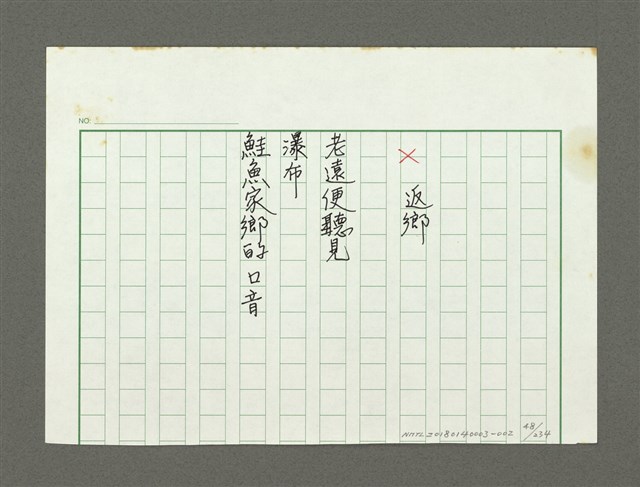 NO:
× 返鄉
老遠便聽見
瀑布
鮭魚家鄉的口音
NMTL20180140003-002
48/234